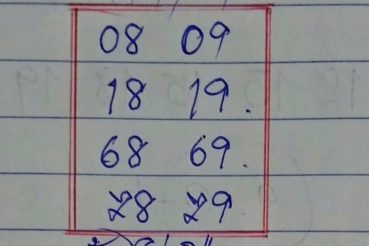 08 09
18 19.
68 69.
78 79